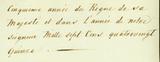 Cinquieme année du Regne de sa
Majesté et dans l'année de notre
Seigneur Mille sept Cens quatrevingt
Quinze